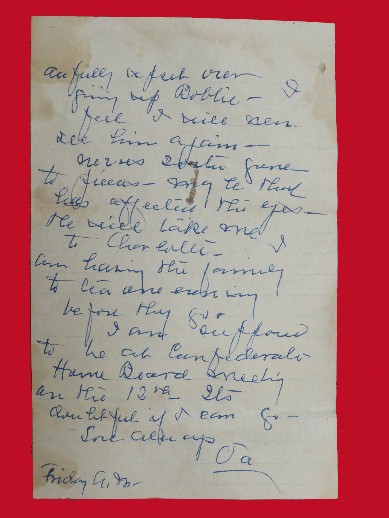 awfully upset over
giving up Bobbie - I
feel I will never
see him again -
nerves gone
to pieces - may be that
has affected the eyes -
He will take me
to Charlotte - I
am having the family
to tea one evening
before they go.
I am suppose
to be at Confederate
Home Board meeting
on the 12th Its
doubtful if I can go -
Love always
Friday A.M.